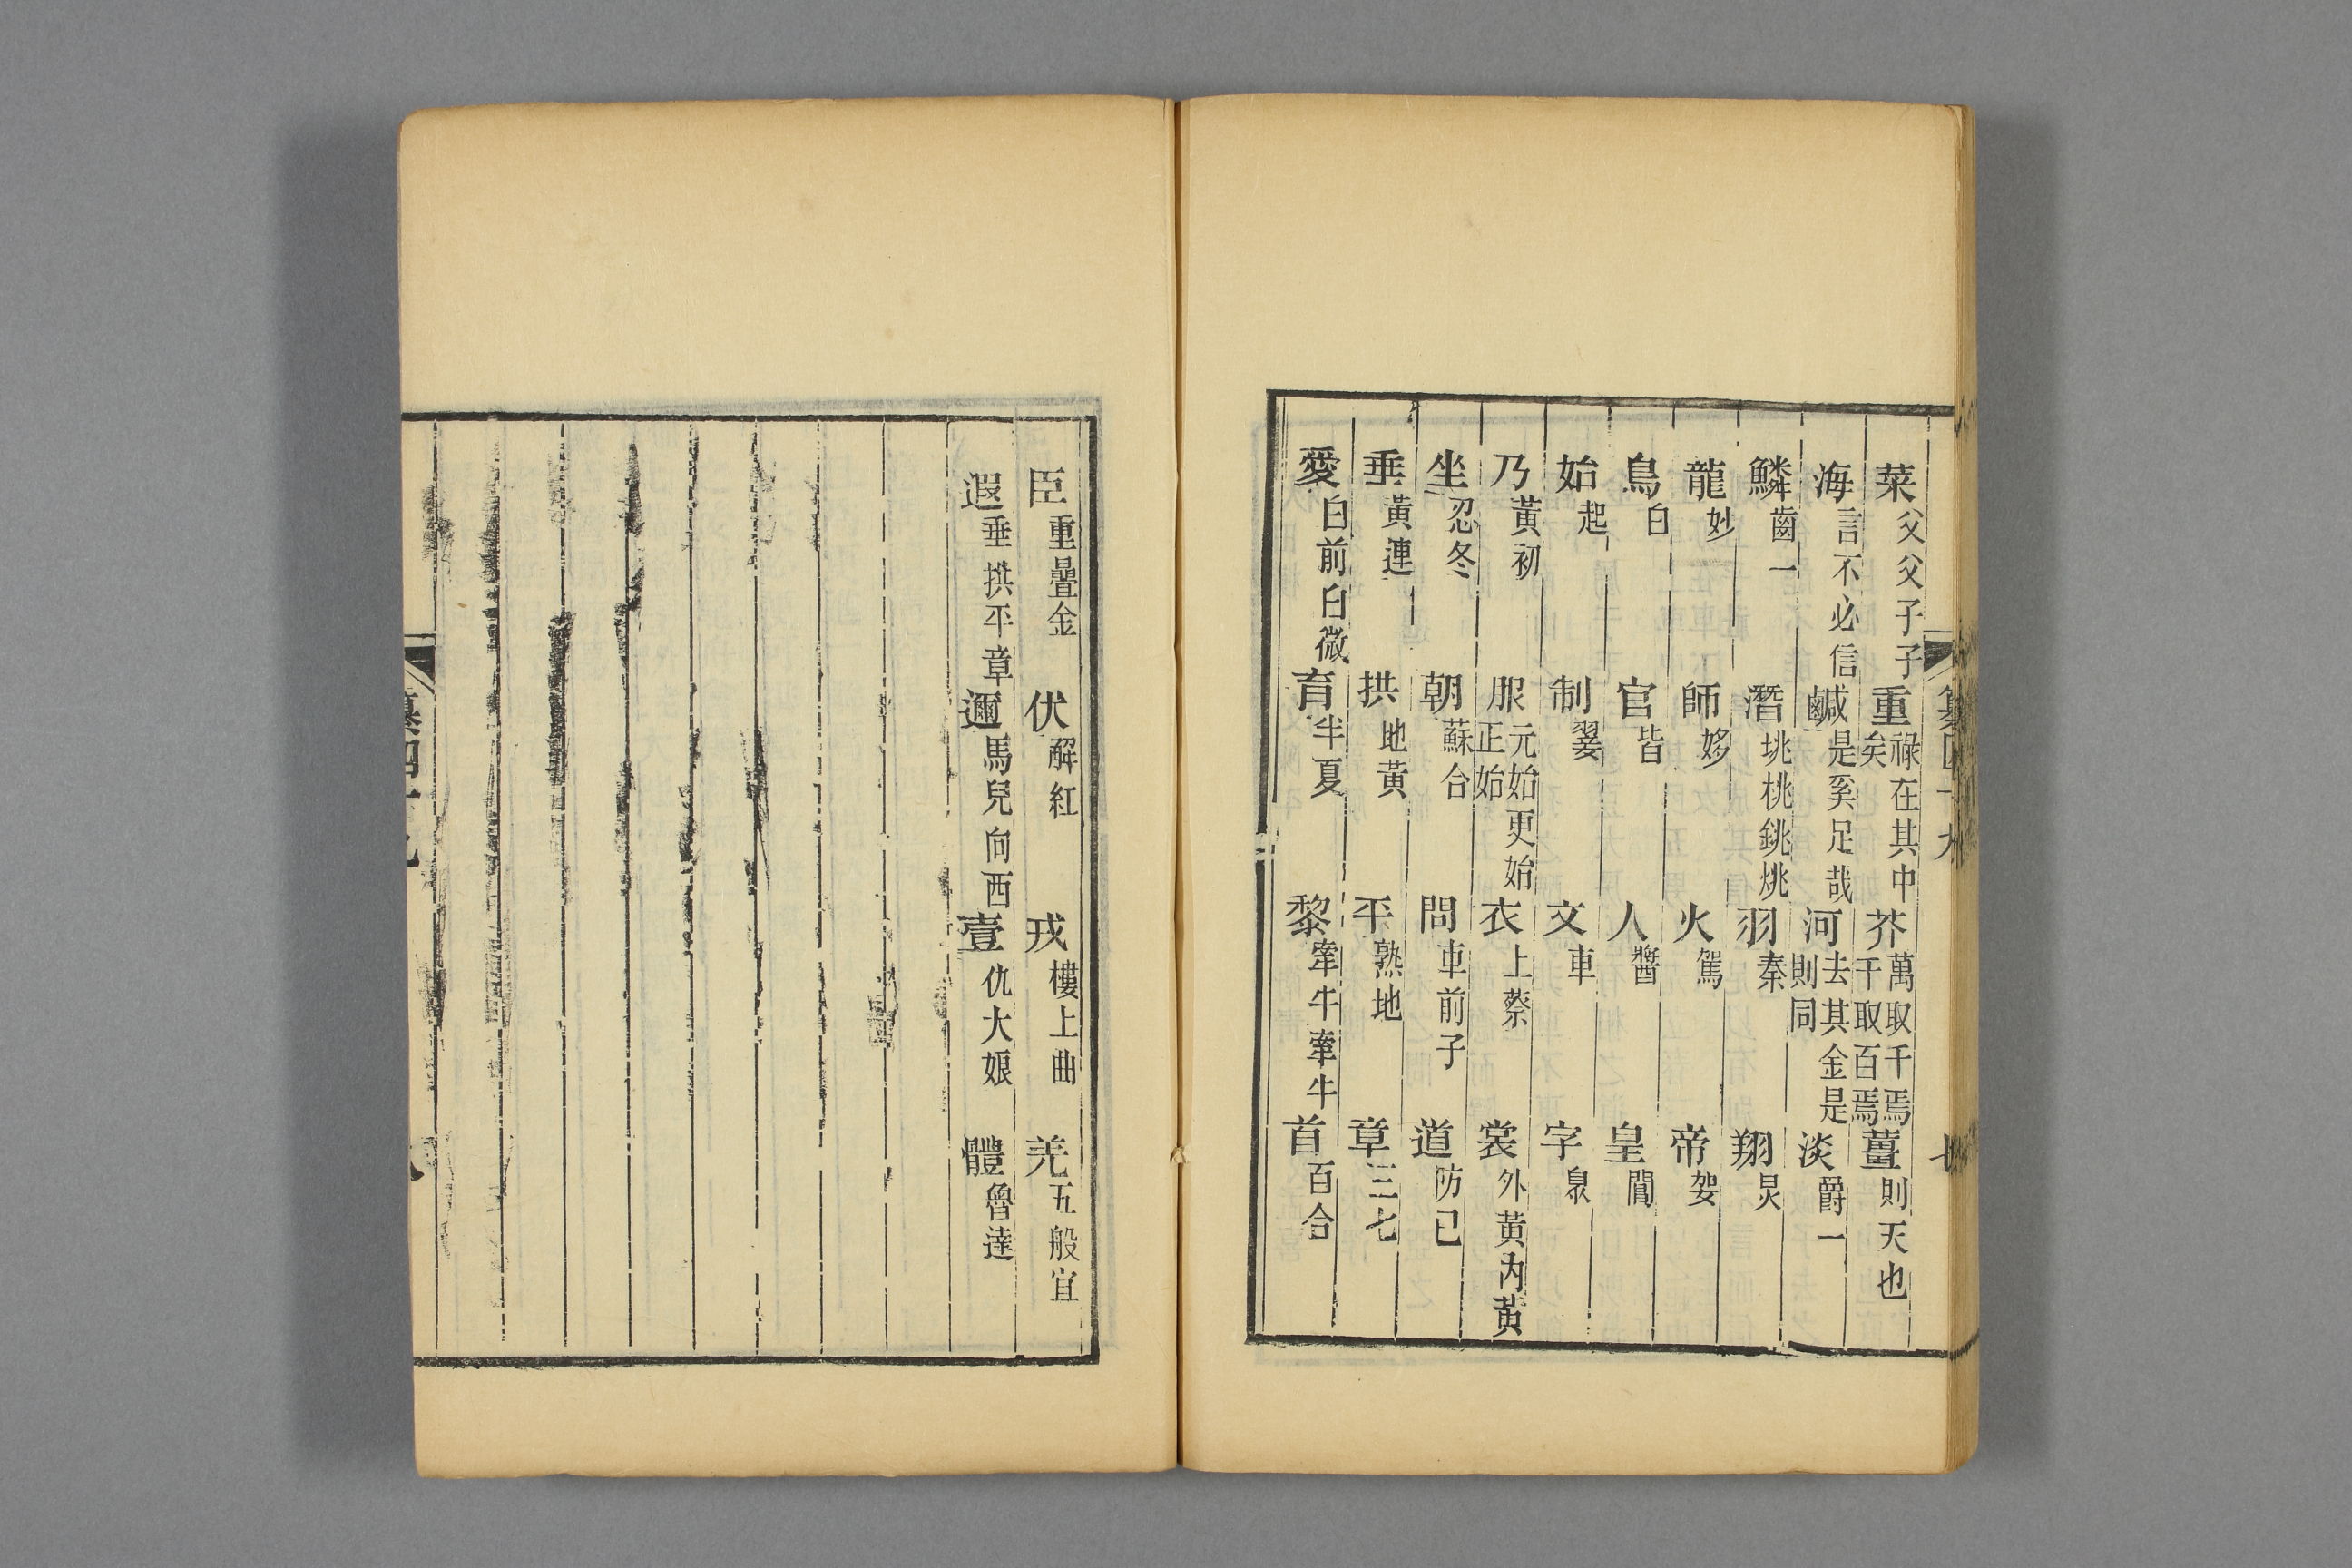 菜父父子子重祿在其中矣芥萬取千焉千取百焉薑則天也
海言不必信鹹是奚足哉河去其金是則同淡爵一
鱗齒一潛垗桃銚烑羽秦翔炅
龍妙師姼火駕帝妿
鳥白官皆人醬皇閶
始起制翣文車字泉
乃黃初服元始更始正始衣上蔡裳外黃內黃
坐忍冬朝蘇合問車前子道防己
垂黃連拱地黃平熟地章三七
愛白前白微育半夏黎牽牛牽牛首百合
臣重疊金伏解紅戎樓上曲羌五般宜
遐垂拱平章邇馬兒向西壹仇大娘體魯達